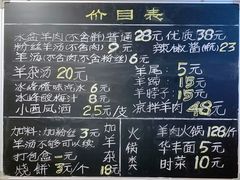 价目表
水盆羊肉(不含饼)普通28元 优质38元
粉丝羊汤(不含肉)9元 辣椒酱(瓶)23
羊汤(不含肉,不含粉丝)6元
羊杂汤20元 羊尾:5元
冰峰橙味汽水6元 羊蹄:
冰峰酸梅汁8元 羊脖子:15元
小西凤酒25元/支 凉拌羊肉48元
加料:加粉丝3元 羊肉火锅128/个
羊汤不够可以续
打包盒一元 华丰面5元
烧饼3元/个 18元 时菜10元
加羊杂
火锅类